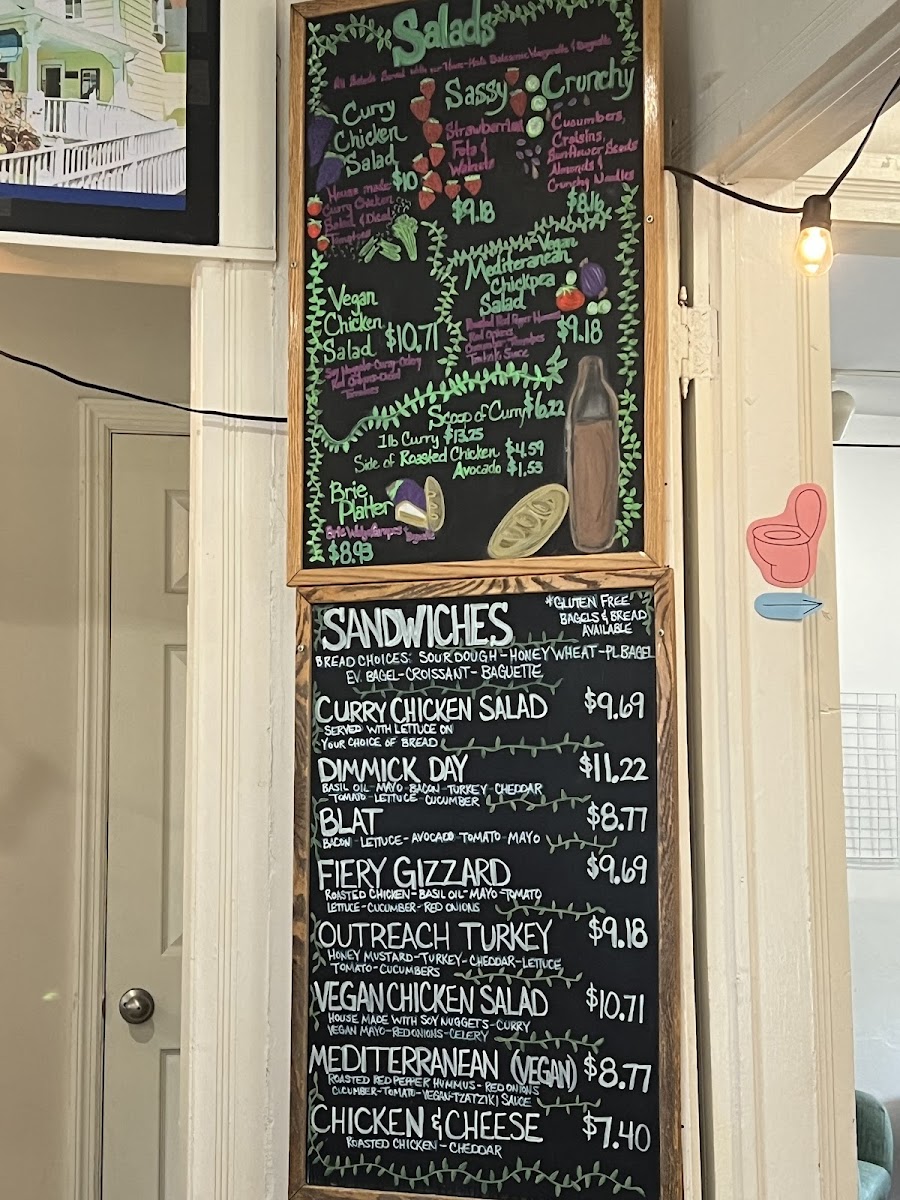 Salads
All Salads Served with our House-Made Balsamic Vinaigrette & Baguette
Curry
Chicken
Salad
$10
House made
Curry Chicken
Salad & Diced
Tomatoes
Sassy
Strawberries
Feta &
Walnuts
$9.18
Crunchy
Cucumbers,
Craisins,
Sunflower Seeds
Almonds &
Crunchy Noodles
$8.16
Vegan
Chicken
Salad $10.71
Soy Nuggets-Curry-Celery
Red Onions-Diced
Tomatoes
Vegan
Mediteranean
Chickpea
Salad
Roasted Red Pepper Hummus
Red Onions
Cucumber Tomatoes
Tzatziki Sauce
$9.18
Scoop of Curry $6.22
1lb Curry $13.25
Side of Roasted Chicken $4.59
Avocado $1.53
Brie
Platter
Brie Grapes Baguette
$8.93
SANDWICHES
*GLUTEN FREE
BAGELS & BREAD
AVAILABLE
BREAD CHOICES: SOURDOUGH-HONEY WHEAT-PL BAGEL
EV. BAGEL-CROISSANT-BAGUETTE
CURRY CHICKEN SALAD $9.69
SERVED WITH LETTUCE ON
YOUR CHOICE OF BREAD
DIMMICK DAY $11.22
BASIL OIL-MAYO-BACON-TURKEY-CHEDDAR
TOMATO-LETTUCE-CUCUMBER
BLAT $8.77
BACON-LETTUCE-AVOCADO-TOMATO-MAYO
FIERY GIZZARD $9.69
ROASTED CHICKEN-BASIL OIL-MAYO-TOMATO
LETTUCE-CUCUMBER-RED ONIONS
OUTREACH TURKEY $9.18
HONEY MUSTARD-TURKEY-CHEDDAR-LETTUCE
TOMATO-CUCUMBERS
VEGAN CHICKEN SALAD $10.71
HOUSE MADE WITH SOY NUGGETS-CURRY
VEGAN MAYO-RED ONIONS-CELERY
MEDITERRANEAN (VEGAN) $8.77
ROASTED RED PEPPER HUMMUS-RED ONIONS
CUCUMBER-TOMATO-VEGAN-TZATZIKI SAUCE
CHICKEN & CHEESE $7.40
ROASTED CHICKEN-CHEDDAR